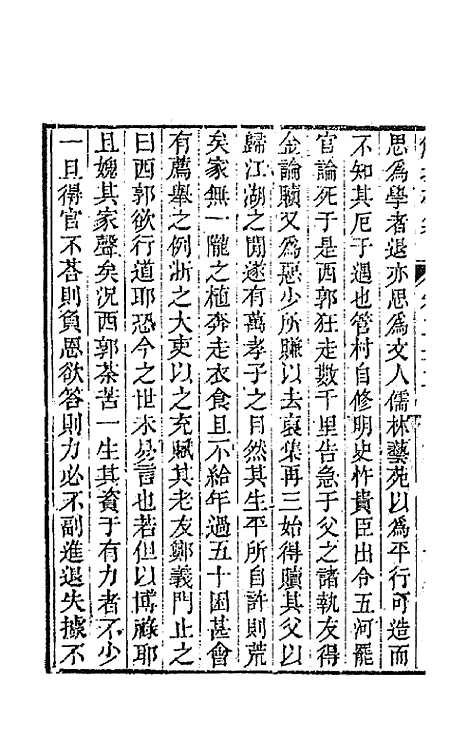 思爲學者退亦思爲文人儒林藝苑以爲平行可造而
不知其厄于遇也管村自修明史忤貴臣出令五河罷
官論死于是西郭狂走數千里告急于父之諸執友得
金論贖又爲惡少所賺以去哀集再三始得贖其父以
歸江湖之閒遂有萬孝子之目然其生平所自許則荒
矣家無一隴之植奔走衣食且不給年過五十困甚會
有薦舉之例浙之大吏以之充賦其老友鄭義門止之
曰西郭欲行道耶恐今之世未易言也若但以博祿耶
且媿其家聲矣況西郭茶苦一生其資于有力者不少
一旦得官不荅則負恩欲答則力必不副進退失據不